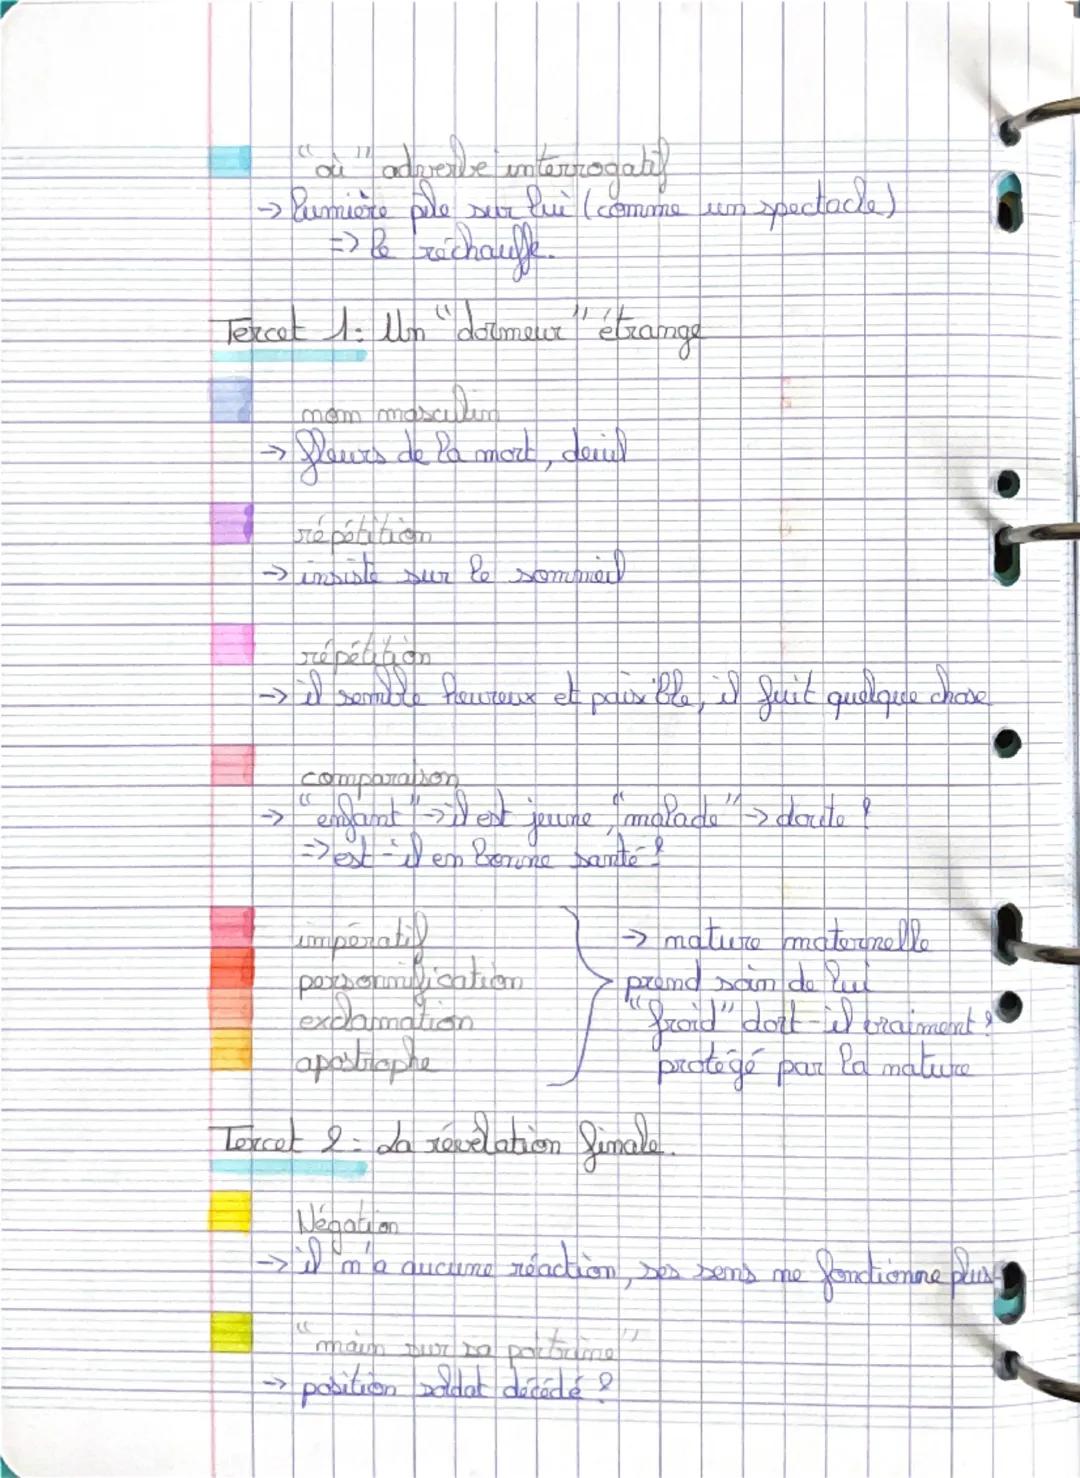 "où" adverbe interrogatif
-> lumière pile sur lui (comme un spectacle)
=> le réchauffe.
Tercet 1: Un "dormeur" étrange
nom masculin
-> fleurs de la mort, deuil
répétition
-> insiste sur le sommeil
répétition
-> il semble heureux et paisible, il fuit quelque chose
comparaison
-> "enfant" -> il est jeune, "malade" -> doute ?
=> est-il en bonne santé ?
impératif
personnification
exclamation
apostrophe
-> nature maternelle
prend soin de lui
"froid" dort-il vraiment ?
protégé par la nature
Tercet 2: La révélation finale.
Négation
-> il n'a aucune réaction, ses sens ne fonctionne plus
"main sur sa poitrine"
-> position soldat décédé ?